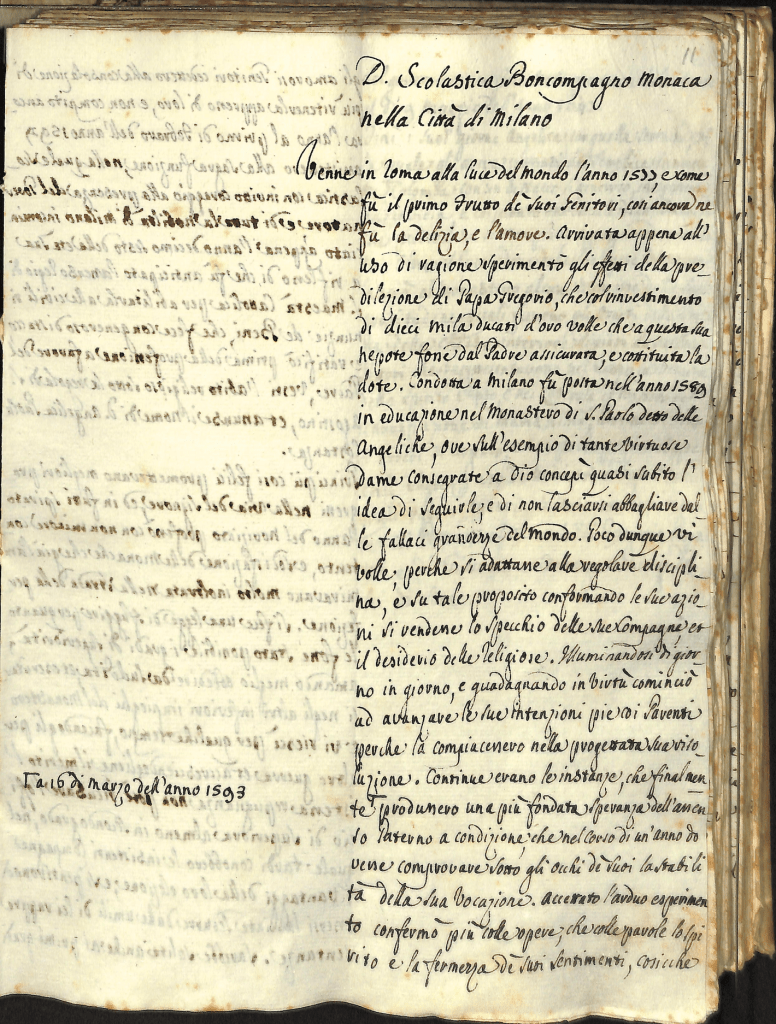 11
D. Scolastica Boncompagno Monaca
nella Città di Milano
Venne in Roma alla luce del mondo l'anno 1577, e come
fù il primo frutto dè suoi Genitori, così ancora ne
fù la delizia, e l'amore. Arrivata appena all'
uso di ragione sperimentò gli effetti della pre-
dilezione di Papa Gregorio, che col rinvestimento
di dieci mila ducati d'oro volle che a questa sua
nepote fosse dal Padre assicurata, e costituita la
dote. Condotta a Milano fù posta nell'anno 1589
in educazione nel Monastero di S. Paolo detto delle
Angeliche, ove sull'esempio di tante virtuose
Dame consegrate a Dio concepì quasi subito l'
idea di seguirle, e di non lasciarsi abbagliare dal
le fallaci grandezze del mondo. Poco dunque vi
volle, perche si adattasse alla regolare discipli-
na, e su tale proposito conformando le sue azio-
ni si rendesse lo specchio delle sue Compagne, et
il desiderio delle Religiose. Illuminandosi di gior-
no in giorno, e guadagnando in virtù cominciò
ad avanzare le sue intenzioni pie coi Parenti
perche la compiacessero nella progettata sua riso-
luzione. Continue erano le instanze, che finalmen-
te produssero una più fondata speranza dell'assen-
so Paterno a condizione, che nel corso di un'anno do
vesse comprovare sotto gli occhi dè suoi la stabili
tà della sua Vocazione. Accettato l'arduo esperimen
to confermò più colle opere, che colle parole lo spi
rito e la fermezza dè suoi sentimenti, cosicche
La 16 di marzo dell'anno 1593